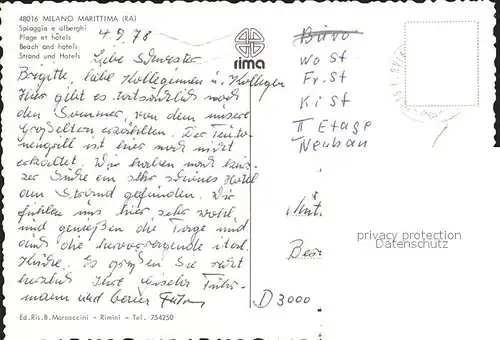 48016 MILANO MARITTIMA (RA)
Spiaggia e alberghi
Plage et hôtels
Beach and hotels
Strand und Hotels
rima
4.9.78
Liebe Schwester
Brigitte, liebe Kolleginnen u. Kollegen
Hier gibt es tatsächlich noch
den Sommer, von dem unsere
Großeltern erzählten. Der Teuto-
nengrill ist hier noch nicht
erkaltet. Wir haben nach kur-
zer Suche ein sehr schönes Hotel
am Strand gefunden. Wir
fühlen uns hier sehr wohl
und genießen die Tage und
auch die hervorragende ital.
Küche. Es grüßen Sie recht
herzlich Ihre
mann und
Büro
Wo St
Fr. St
Ki St
II Etage
Neubau
D 3000
privacy protection
Datenschutz
Ed. Ris. B. Marcaccini - Rimini - Tel. 754250